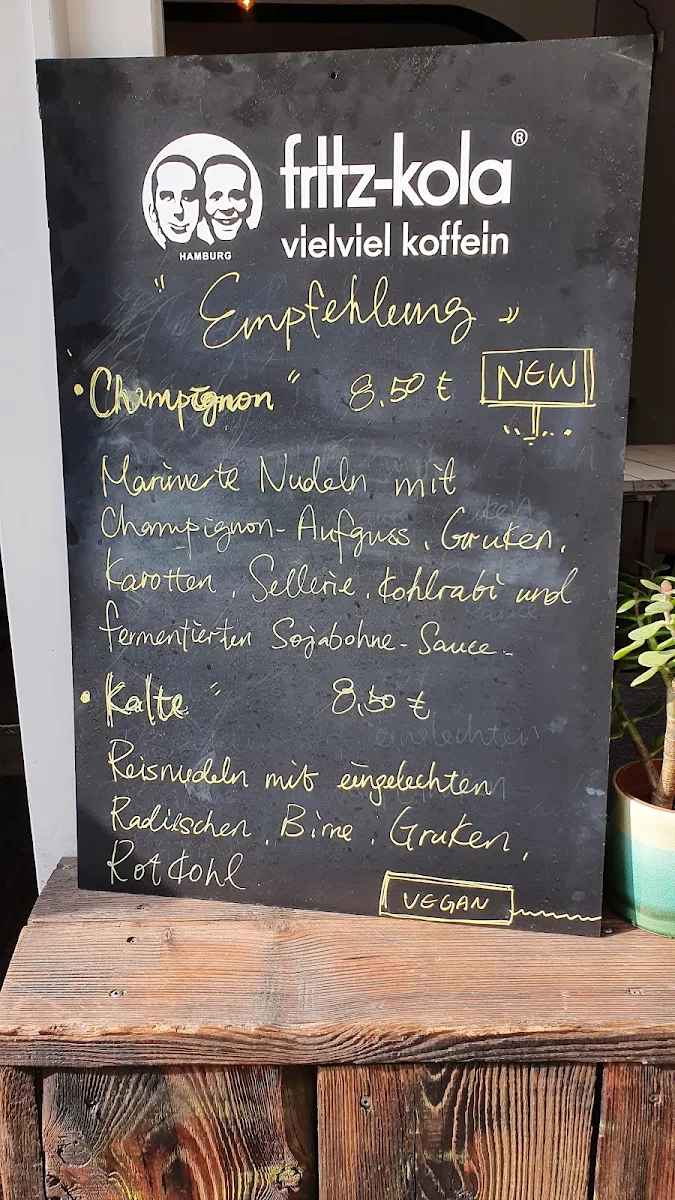 fritz-kola®
HAMBURG
vielviel koffein
" Empfehlung "
• Champignon " 8,50 € NEW
Marinierte Nudeln mit
Champignon-Aufguss, Gruken,
Karotten, Sellerie, Kohlrabi und
fermentierten Sojabohne-Sauce.
• Kalte " 8,50 €
Reisnudeln mit eingelechten
Radieschen, Birne, Gruken,
Rotkohl
VEGAN